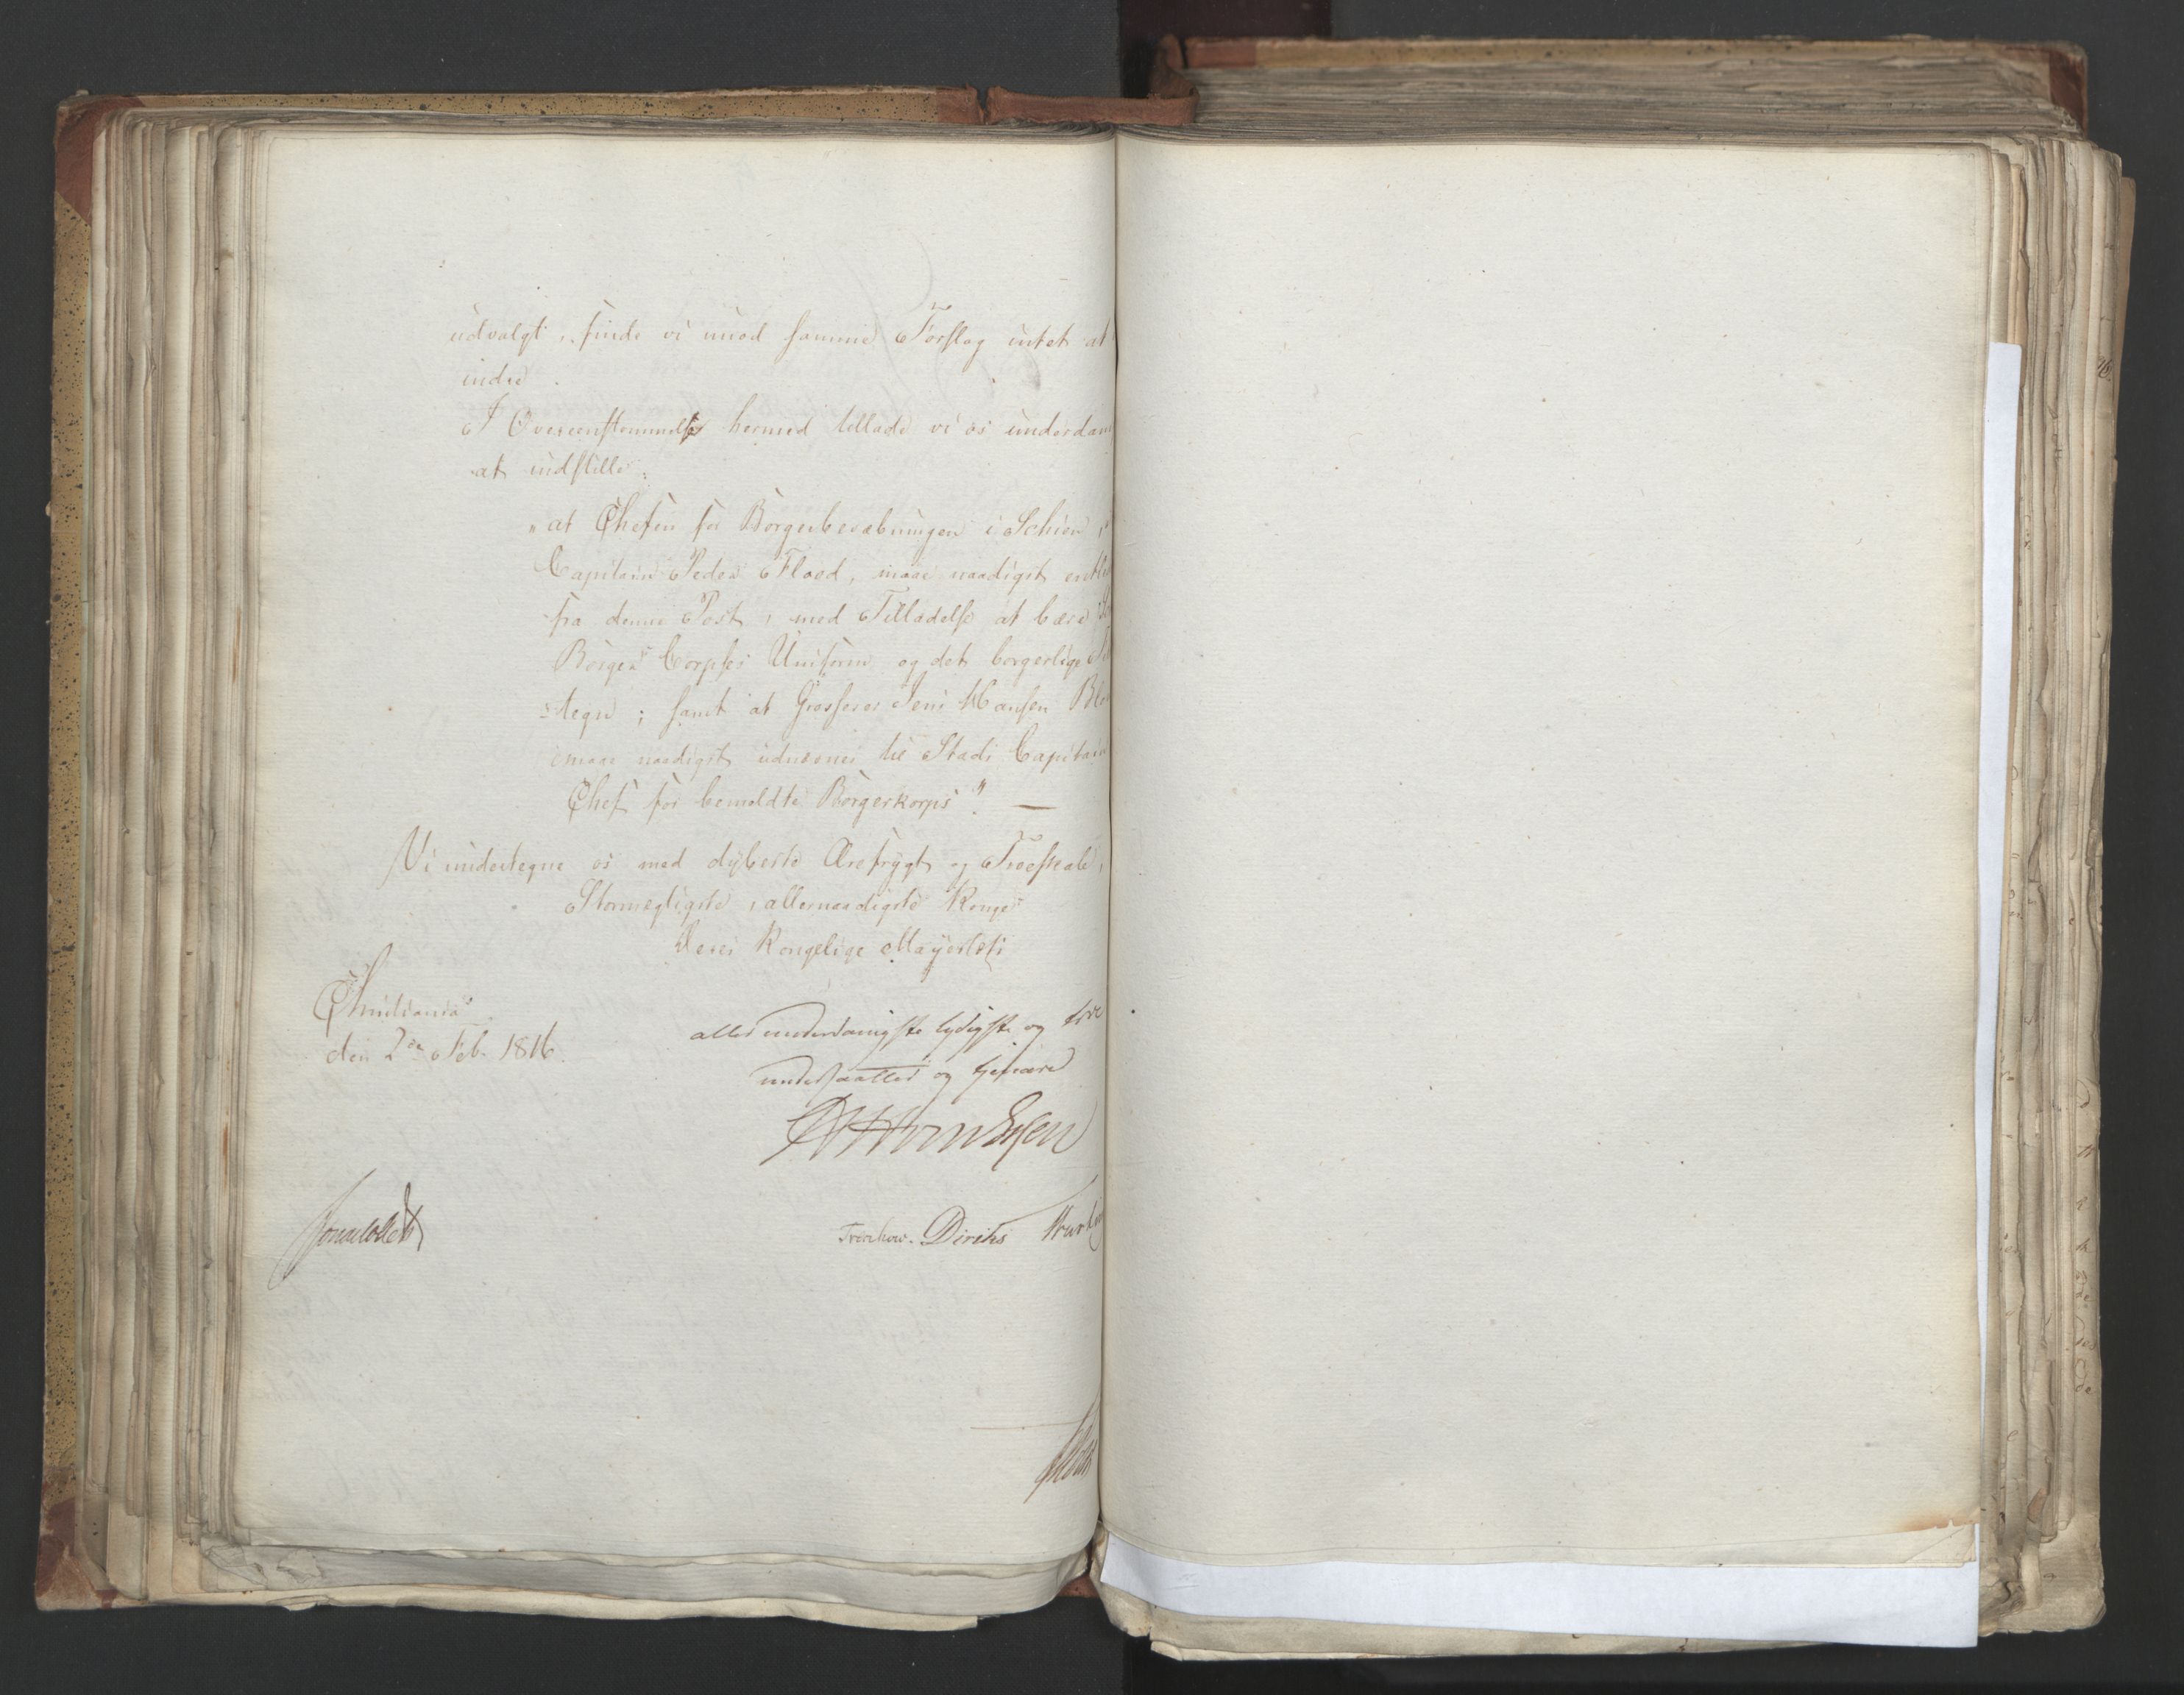 udvalgt, finde vi imod samme Forslag intet at
indre.
I Overeenstemmelse hermed tillade vi os underdan
at indstille:
"at Chefen for Borgerbevæbningen i Schien,
Capitain Peder Floed, maae naadigst entle
fra denne Post, med Tilladelse at bære
Borger Corpses Uniform og det borgerlige
=tegn; samt at Grosserer Jens Hansen Blo
maae naadigst udnævnes til Stads Capitain
Chef for bemeldte Borgerkorps". —
Vi undertegne os med dybeste Ærefrygt og Troeskab,
Stormægtigste, allernaadigste Konge
Deres Kongelige Mayestæts
Christiania
den 2den Feb. 1816.
allerunderdanigste lydigste og troe
undersaatter og tjenere
Jonas Collett
Treschow. Diriks